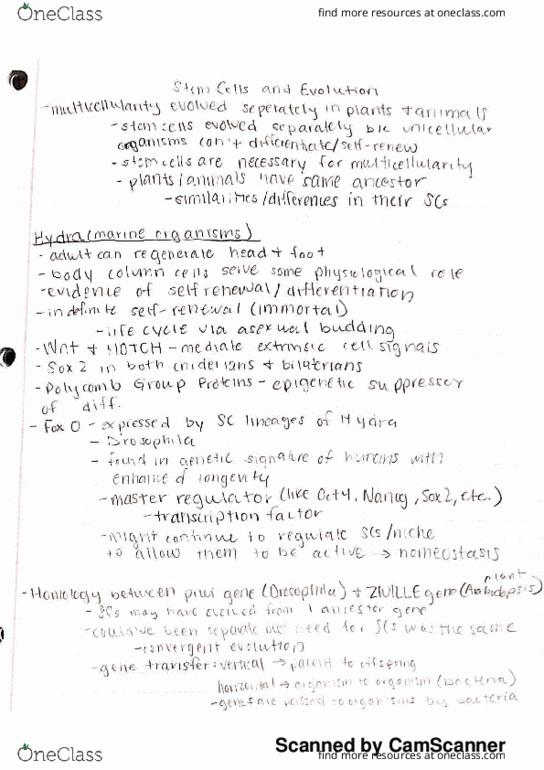 OneClass
find more resources at oneclass.com
Stem Cells and Evolution
-multicellularity evolved seperately in plants + animals
-stem cells evolved separately b/c unicellular
organisms can't differentiate/self-renew
-stem cells are necessary for multicellularity
-plants/animals have same ancestor
-similarities/differences in their SCs
Hydra (marine organisms)
-adult can regenerate head + foot
-body column cells serve some physiological role
-evidence of self renewal/differentiation
-indefinite self-renewal (immortal)
-life cycle via asexual budding
-Wnt + NOTCH - mediate extrinsic cell signals
-Sox2 in both cniderians + bilaterians
-Polycomb Group Proteins - epigenetic suppresser
of diff.
-Fox O - expressed by SC lineages of Hydra
-Drosophila
-found in genetic signature of humans with
enhanced longevity
-master regulator (like Oct4, Nanog, Sox2, etc.)
-transcription factor
-might continue to regulate SCs/niche
to allow them to be active → homeostasis
plant
-Homology between piwi gene (Drosophila) + ZWILLE gene (Arabidopsis)
-SCs may have evolved from 1 ancester gene
-could've been separate but need for SCs was the same
-convergent evolution
-gene transfer: vertical → parent to offspring
horizontal → organism to organism (bacteria)
-genes are passed to organisms by bacteria
Scanned by CamScanner
OneClass
find more resources at oneclass.com